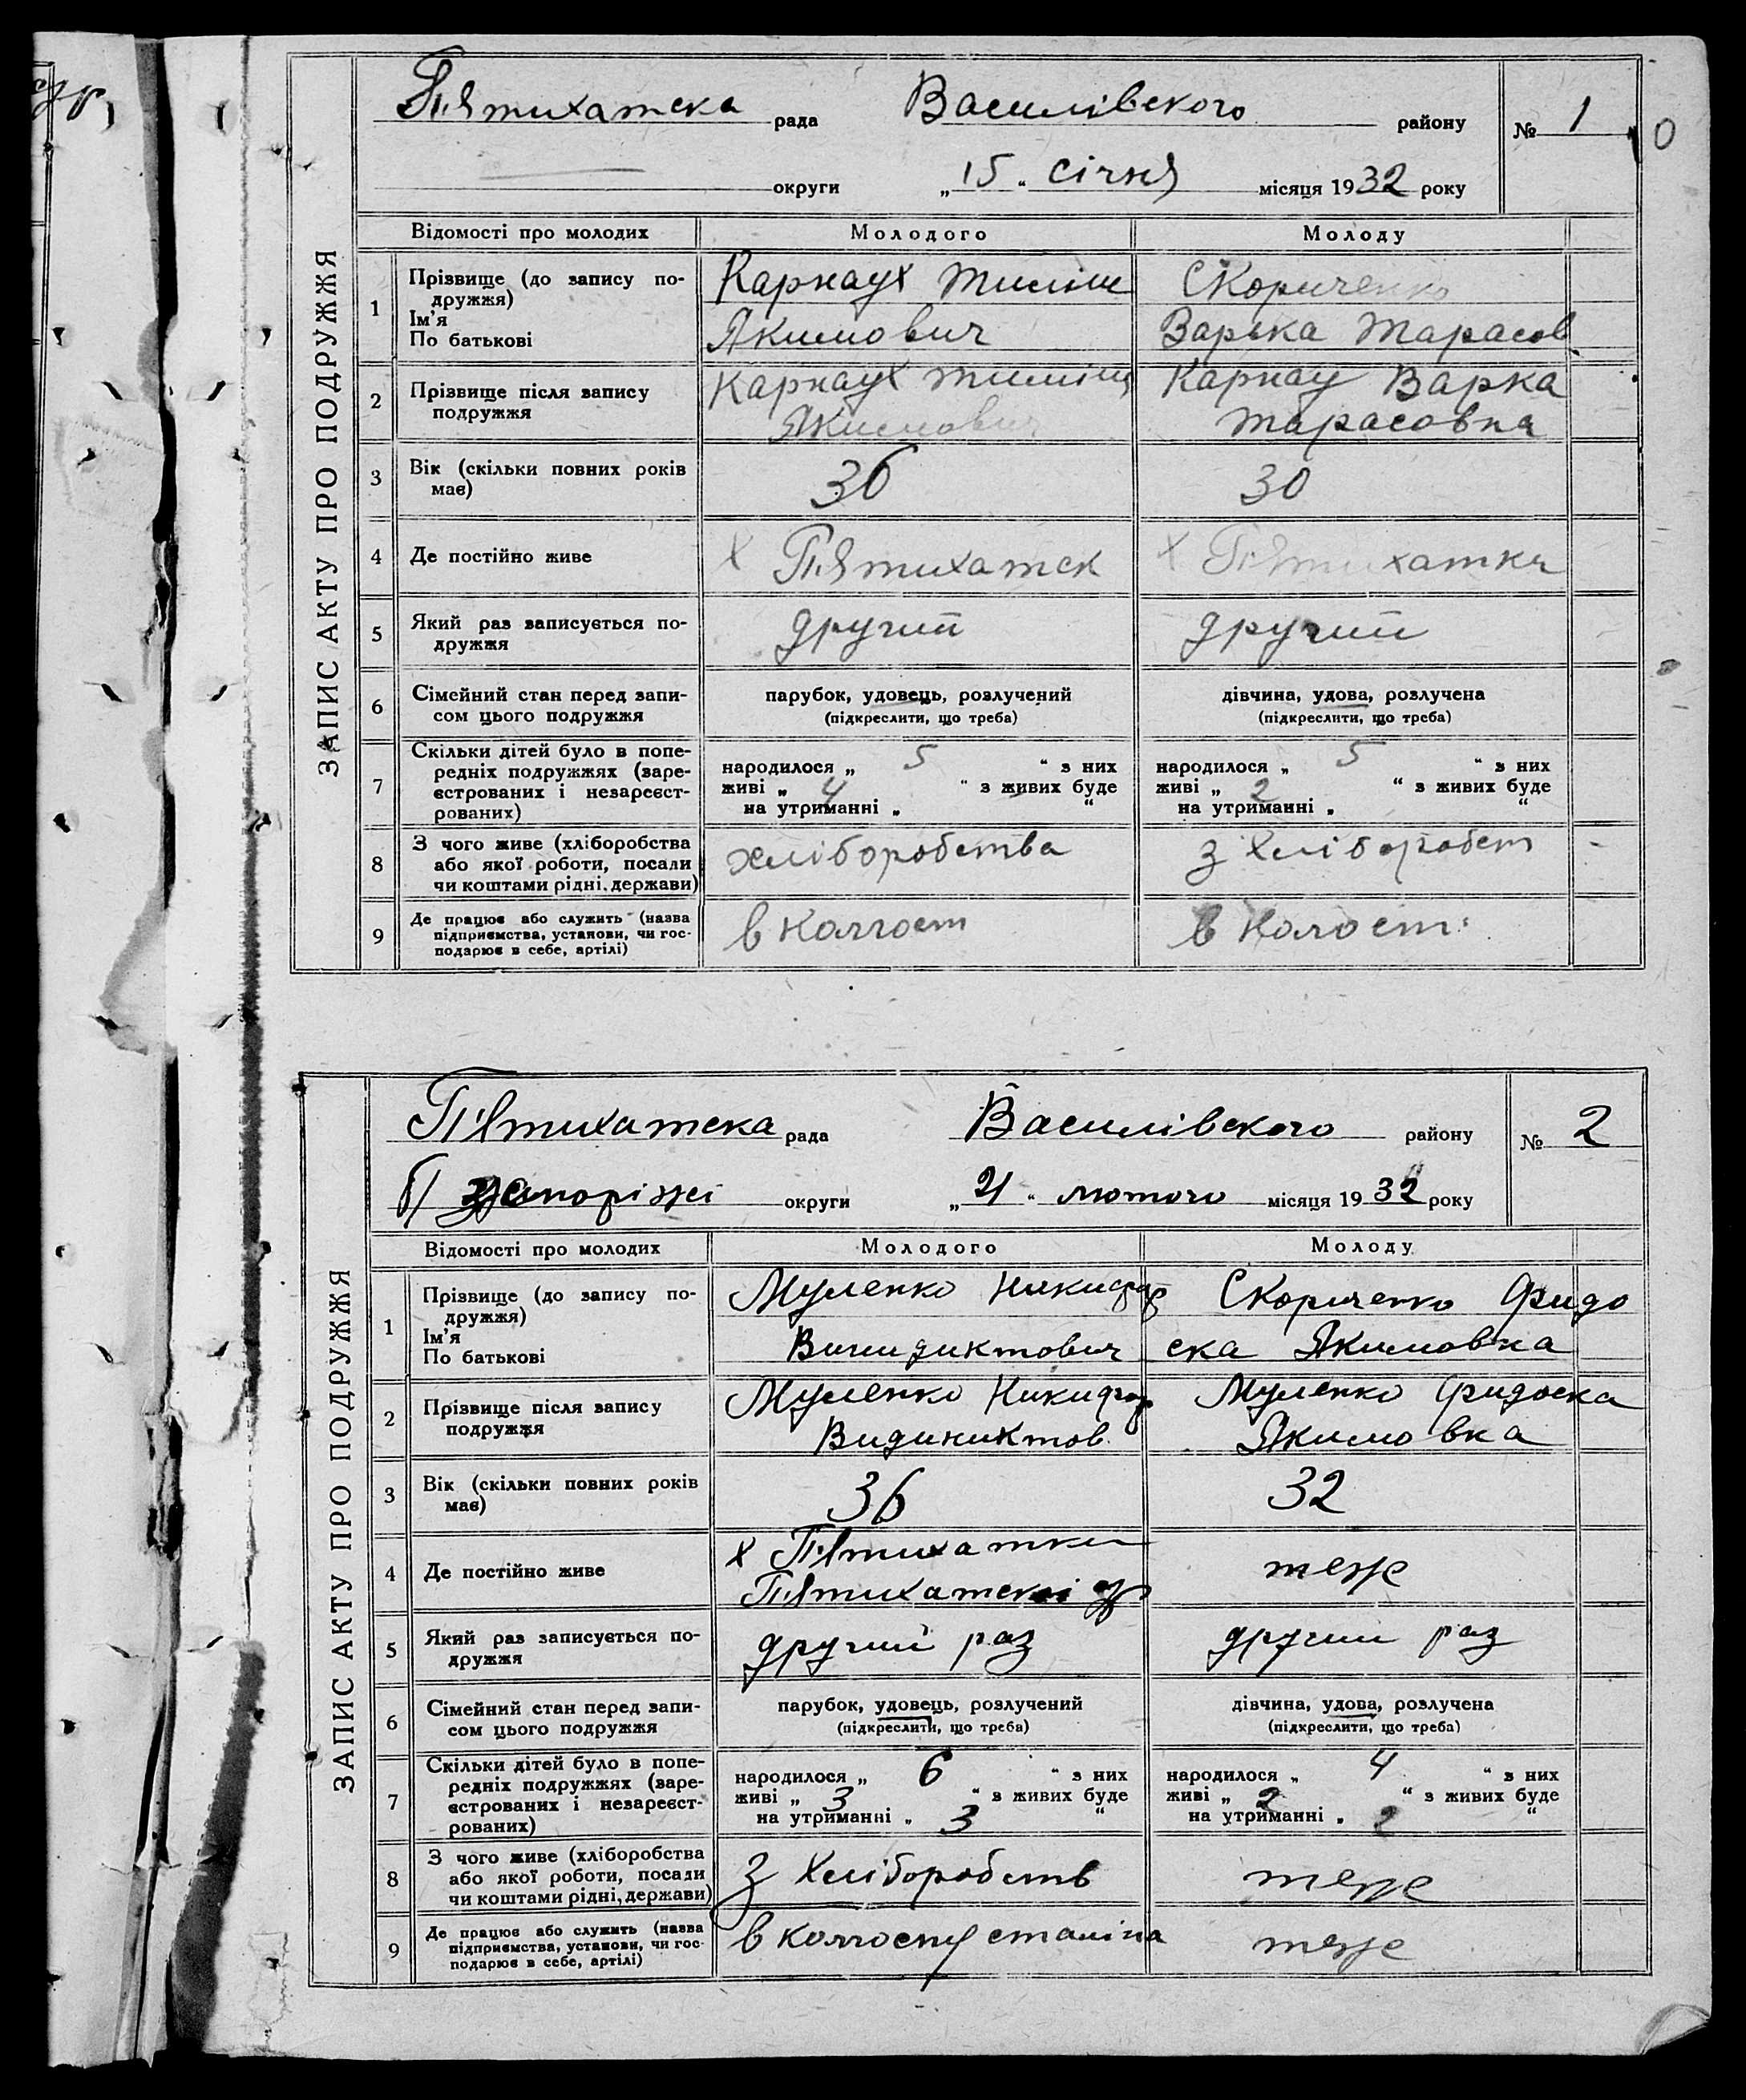 П'ятихатска рада Василівского району № 1
округи „15“ січня місяця 1932 року
ЗАПИС АКТУ ПРО ПОДРУЖЖЯ
Відомості про молодих Молодого Молоду
1 Прізвище (до запису по-
дружжя)
Ім’я
По батькові
Карнаух Тиміш
Якимович
Скориченко
Варька Тарасов
2 Прізвище після запису
подружжя
Карнаух Тиміш
Якимович
Карнау Варка
Тарасовна
3 Вік (скільки повних років
має)
36
30
4 Де постійно живе Х П'ятихатск Х П'ятихатки
5 Який раз записується по-
дружжя
другий
другий
6 Сімейний стан перед запи-
сом цього подружжя
парубок, удовець, розлучений
(підкреслити, що треба)
дівчина, удова, розлучена
(підкреслити, що треба)
7 Скільки дітей було в попе-
редніх подружжях (заре-
єстрованих і незареєст-
рованих)
народилося „ 5 “ з них
живі „ 4 “ з живих буде
на утриманні „ “
народилося „ 5 “ з них
живі „ 2 “ з живих буде
на утриманні „ “
8 З чого живе (хліборобства
або якої роботи, посади
чи коштами рідні, держави)
хліборобства
з хліборобст
9 Де працює або служить (назва
підприємства, установи, чи гос-
подарює в себе, артілі)
в колгост
в колост
П'ятихатска рада Василівского району № 2
б/ Запоріжі округи „21“ лютого місяця 1932 року
ЗАПИС АКТУ ПРО ПОДРУЖЖЯ
Відомості про молодих Молодого Молоду
1 Прізвище (до запису по-
дружжя)
Ім’я
По батькові
Муленко Никифор
Винидиктович
Скориченко Фидо
ска Якимовна
2 Прізвище після запису
подружжя
Муленко Никифор
Видиниктов
Муленко Фидоска
Якимовна
3 Вік (скільки повних років
має)
36
32
4 Де постійно живе
Х П'ятихатки
П'ятихатскі с/р
теже
5 Який раз записується по-
дружжя
другий раз
другий раз
6 Сімейний стан перед запи-
сом цього подружжя
парубок, удовець, розлучений
(підкреслити, що треба)
дівчина, удова, розлучена
(підкреслити, що треба)
7 Скільки дітей було в попе-
редніх подружжях (заре-
єстрованих і незареєст-
рованих)
народилося „ 6 “ з них
живі „ 3 “ з живих буде
на утриманні „ 3 “
народилося „ 4 “ з них
живі „ 2 “ з живих буде
на утриманні „ 2 “
8 З чого живе (хліборобства
або якої роботи, посади
чи коштами рідні, держави)
з хліборобств
теже
9 Де працює або служить (назва
підприємства, установи, чи гос-
подарює в себе, артілі)
в колгоспу сталіна
теже